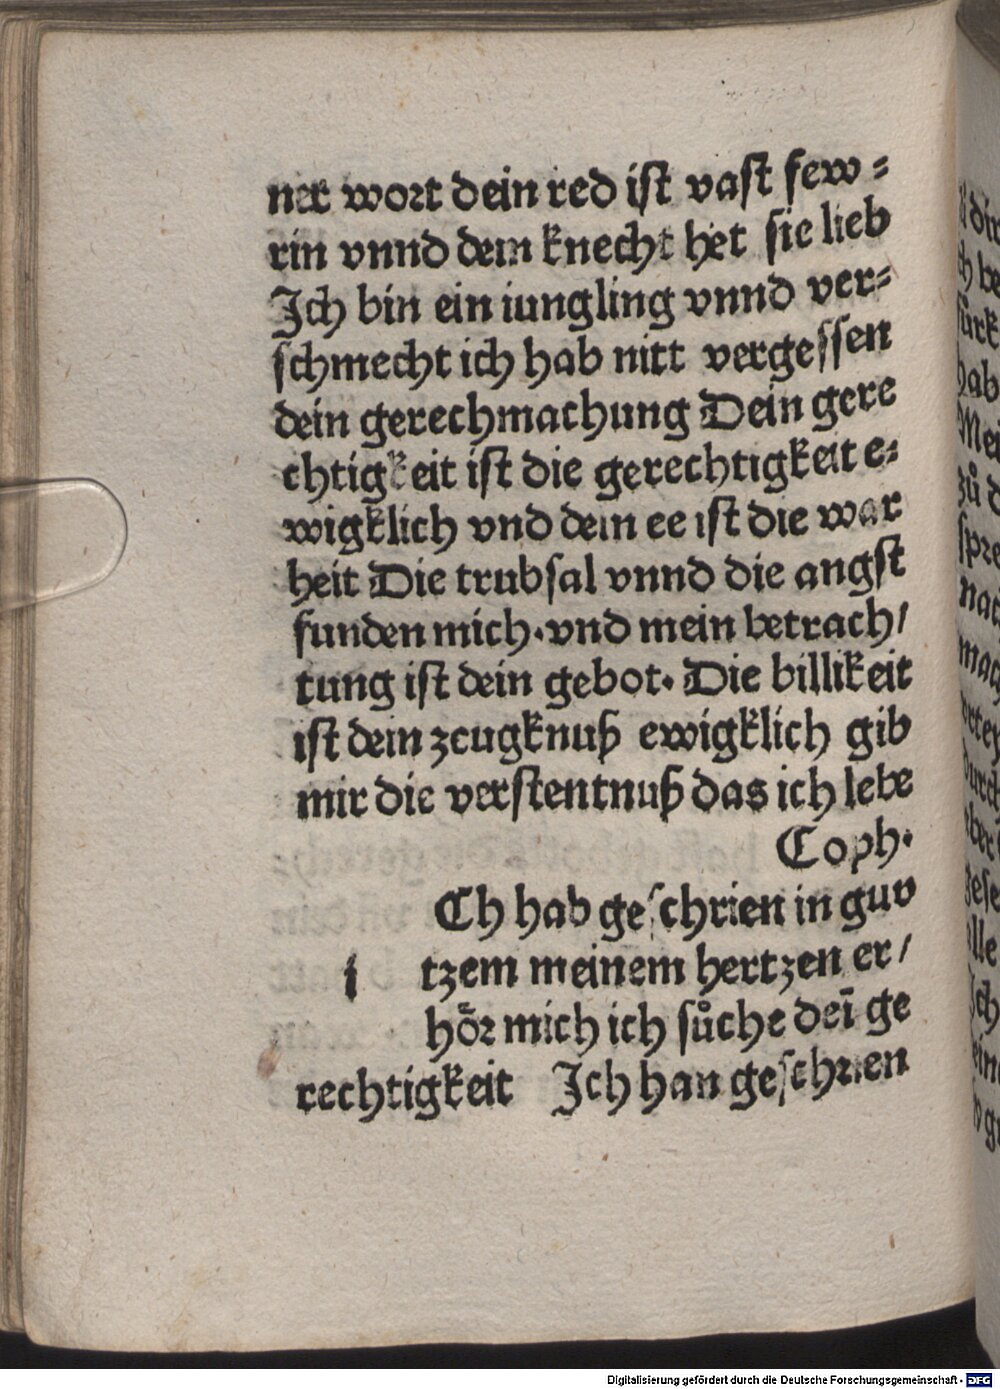 ner wort dein red ist vast few⸗
rin vnnd dein knecht het sie lieb
Jch bin ein iungling vnnd ver⸗
schmecht ich hab nitt vergessen
dein gerechmachung Dein gere
chtigkeit ist die gerechtigkeit e⸗
wigklich vnd dein ee ist die war
heit Die trubsal vnnd die angst
funden mich. vnd mein betrach/
tung ist dein gebot. Die billikeit
ist dein zeugknuß ewigklich gib
mir die verstentnuß das ich lebe
Coph.
Ch hab geschrien in guv
i tzem meinem hertzen er/
hoͤr mich ich suͦche deī ge
rechtigkeit Jch han geschrien
Digitalisierung gefördert durch die Deutsche Forschungsgemeinschaft - DFG